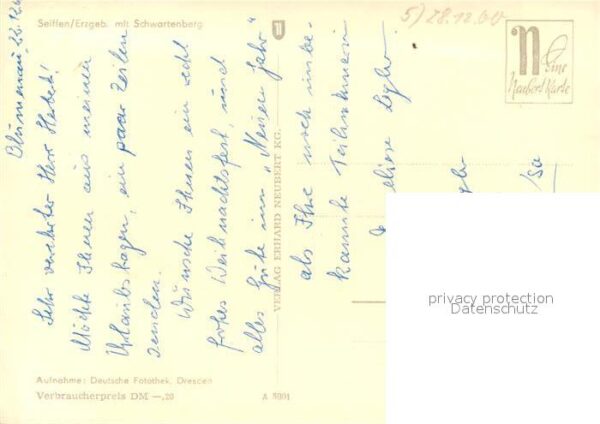 Seiffen/Erzgeb. mit Schwartenberg
5) 28.12.60
Eine
Neubert Karte
Blumenau, 22.12.60
Sehr verehrter Herr Herbert!
Möchte Ihnen aus meinen
Urlaubstagen, ein paar Zeilen
senden.
Wünsche Ihnen ein recht
frohes Weihnachtsfest, und
alles Gute im „Neuen Jahr"
als Ihre noch unbe-
kannte Teilnehmerin
VERLAG ERHARD NEUBERT KG.
Aufnahme: Deutsche Fotothek, Dresden
Verbraucherpreis DM —,20
A 5991
privacy protection
Datenschutz